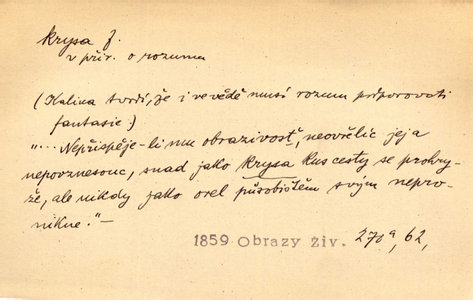 krysa f.
v přir. o rozumu
(Kalina tvrdí, že i ve vědě musí rozum podporovati
fantasie.)
"... Nepřispěje-li mu obrazivosť, neověšíc jej a
nepovznesouc, snad jako krysa kus cesty se prohry-
že, ale nikdy jako orel působištěm svým nepro-
nikne." —
1859 Obrazy Živ. 270a, 62,